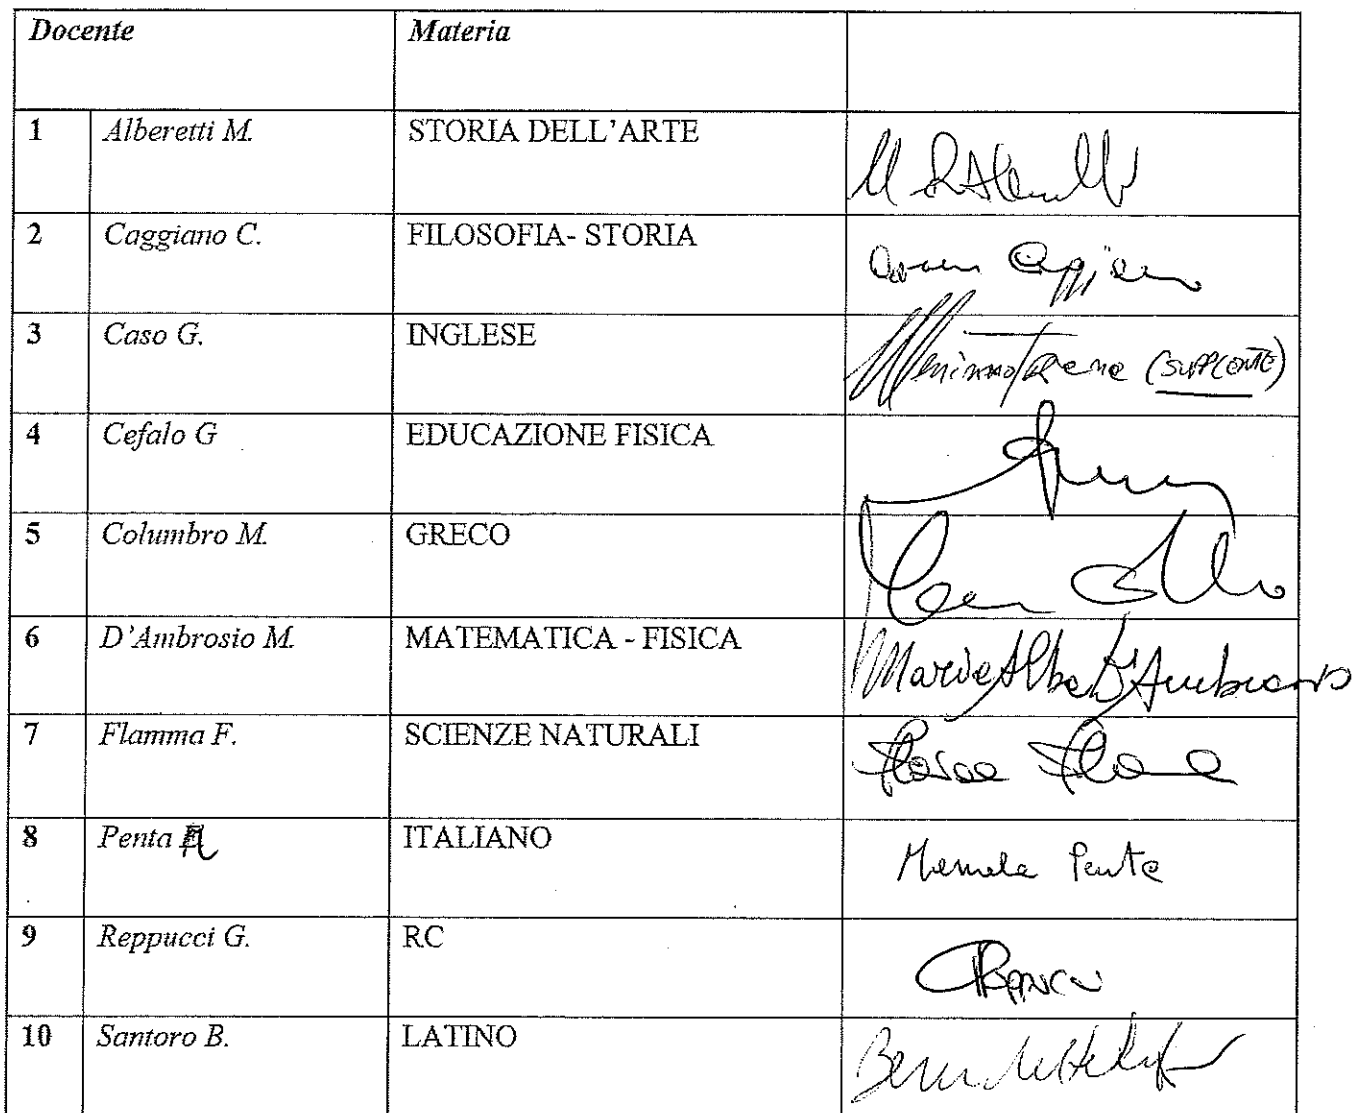 Docente Materia
1 Alberetti M. STORIA DELL'ARTE
2 Caggiano C. FILOSOFIA- STORIA
3 Caso G. INGLESE (SUPPLENTE)
4 Cefalo G EDUCAZIONE FISICA
5 Columbro M. GRECO
6 D'Ambrosio M. MATEMATICA - FISICA Maria Alba D'Ambrosio
7 Flamma F. SCIENZE NATURALI
8 Penta ITALIANO Penta
9 Reppucci G. RC
10 Santoro B. LATINO